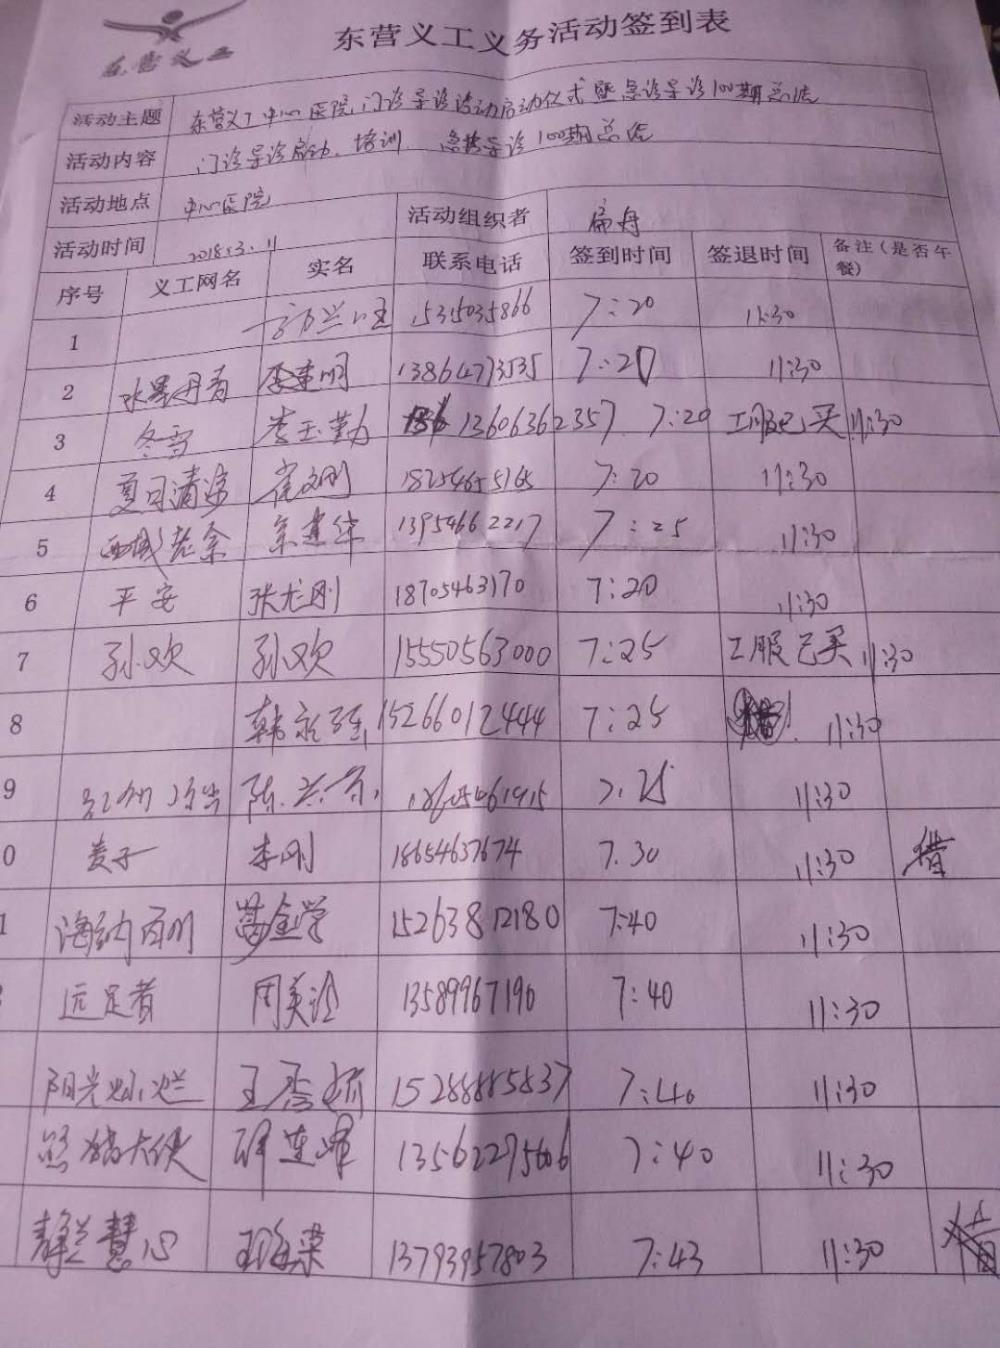 东营义工
东营义工义务活动签到表
活动主题 东营义工中心医院门诊导诊活动启动仪式暨急诊导诊100期总结
活动内容 门诊导诊启动、培训 急诊导诊100期总结
活动地点 中心医院 活动组织者 扁舟
活动时间 2018.3.11
序号 义工网名 实名 联系电话 签到时间 签退时间 备注(是否午餐)
1 7:20 11:30
2 水墨丹青 13864773535 7:20 11:30
3 冬雪 李玉勤 13606362357 7:20 工服已买 11:30
4 夏日清凉 崔文刚 18254655165 7:20 11:30
5 西域老余 余建华 13954662217 7:25 11:30
6 平安 张龙刚 18705463170 7:20 11:30
7 孙欢 孙欢 15550563000 7:25 工服已买 11:30
8 韩永强 15266012444 7:25 11:30
9 7.25 11:30
0 麦子 李刚 18654637674 7.30 11:30 借
1 海纳百川 15263812180 7:40 11:30
远足者 周英玲 13589967196 7:40 11:30
阳光灿烂 15288885837 7:40 11:30
熊猫大侠 13562295606 7:40 11:30
静兰慧心 13793957803 7:43 11:30